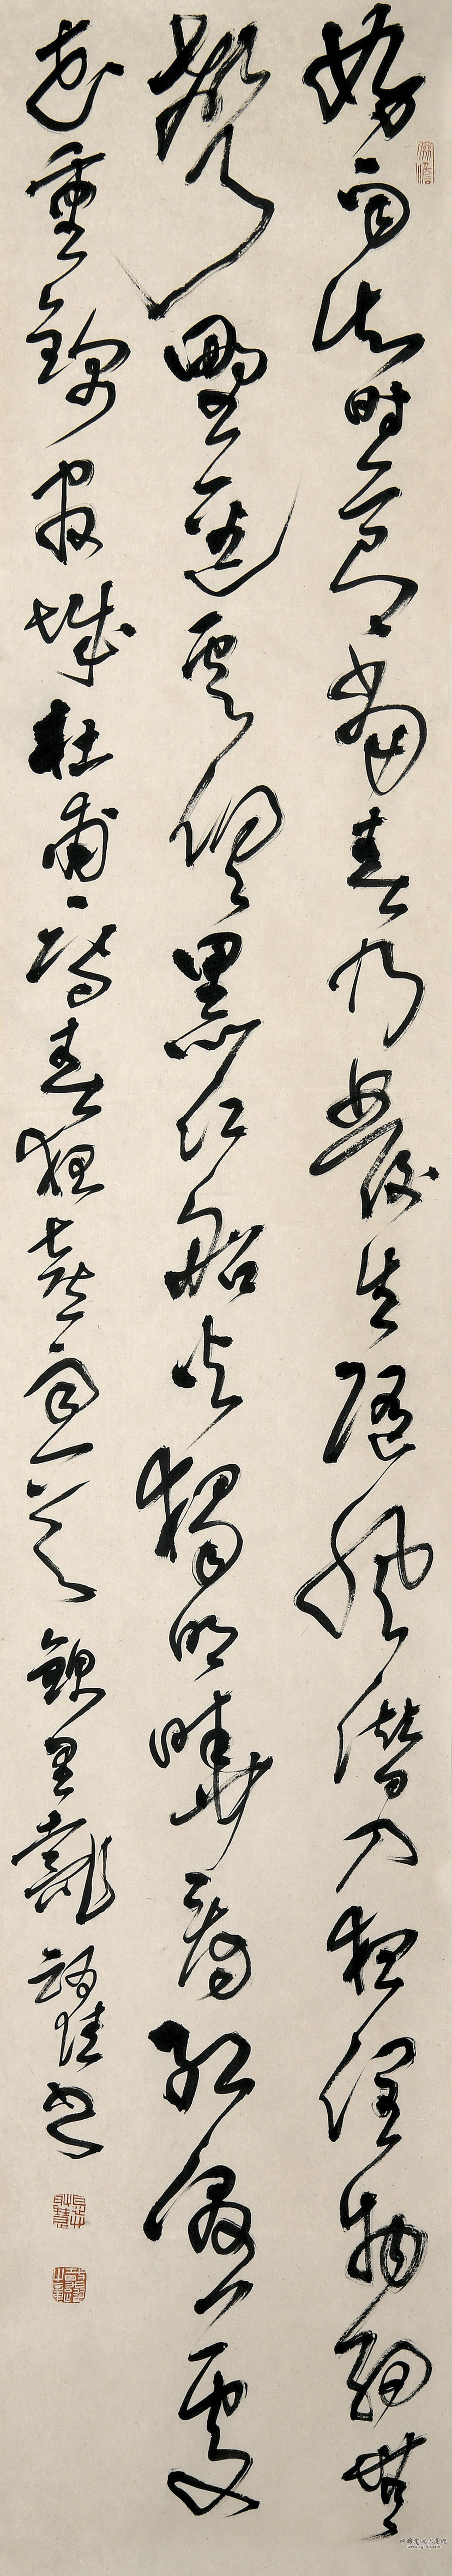 好雨知時節當春乃發生隨風潛入夜潤物細無
聲野徑雲俱黑江船火獨明曉看紅濕處
花重錦官城杜甫詩春夜喜雨一首錦里書